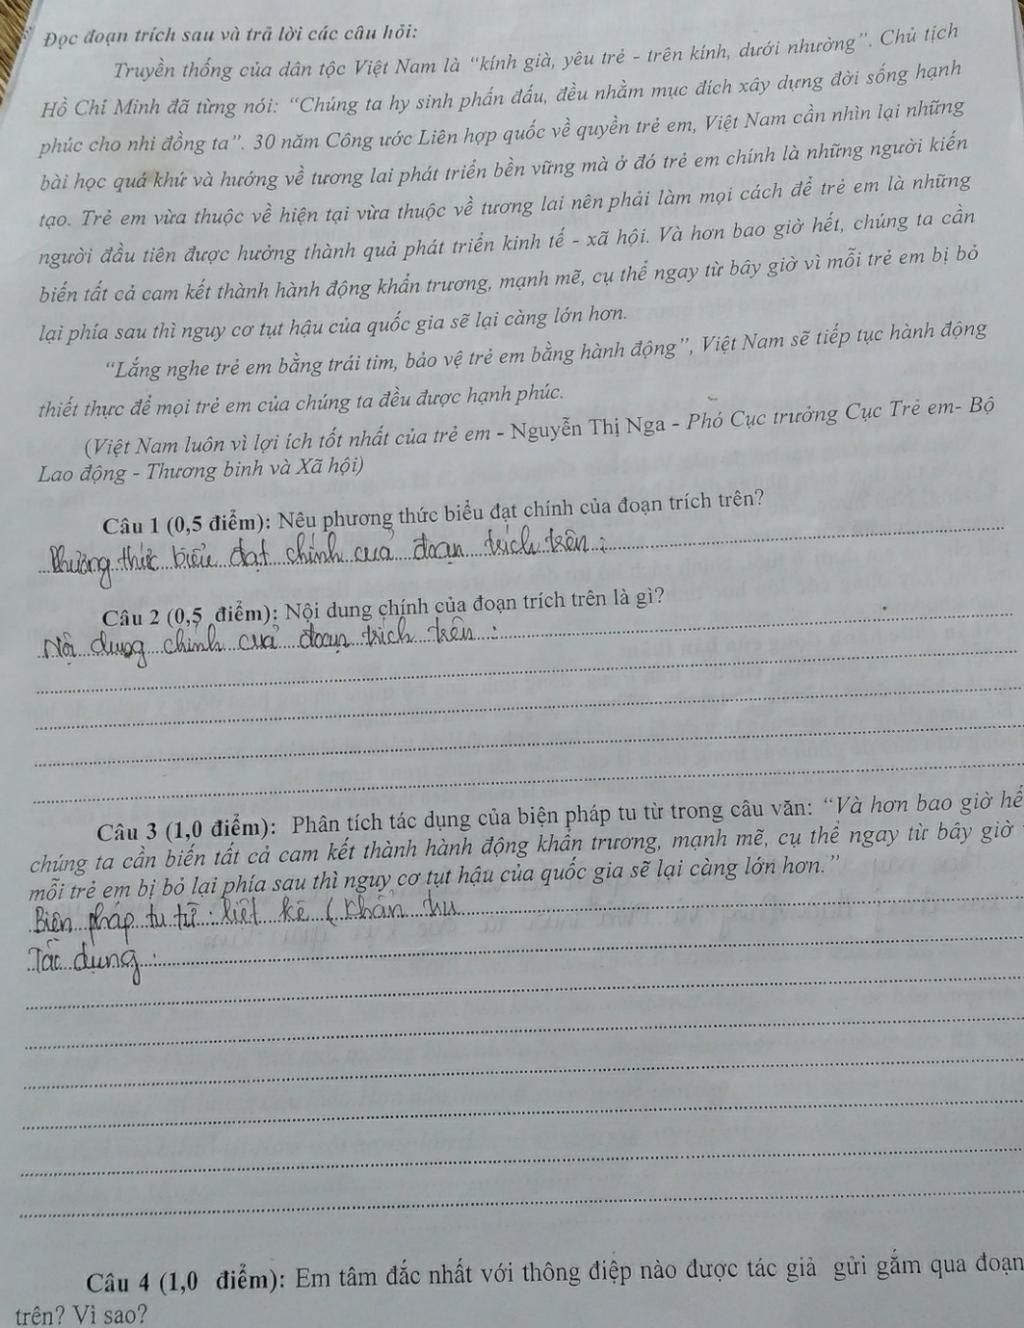 Đọc đoạn trích sau và trả lời các câu hỏi:
Truyền thống của dân tộc Việt Nam là “kính già, yêu trẻ - trên kính, dưới nhường”. Chủ tịch
Hồ Chí Minh đã từng nói: “Chúng ta hy sinh phấn đấu, đều nhằm mục đích xây dựng đời sống hạnh
phúc cho nhi đồng ta”. 30 năm Công ước Liên hợp quốc về quyền trẻ em, Việt Nam cần nhìn lại những
bài học quá khứ và hướng về tương lai phát triển bền vững mà ở đó trẻ em chính là những người kiến
tạo. Trẻ em vừa thuộc về hiện tại vừa thuộc về tương lai nên phải làm mọi cách để trẻ em là những
người đầu tiên được hưởng thành quả phát triển kinh tế - xã hội. Và hơn bao giờ hết, chúng ta cần
biến tất cả cam kết thành hành động khẩn trương, mạnh mẽ, cụ thể ngay từ bây giờ vì mỗi trẻ em bị bỏ
lại phía sau thì nguy cơ tụt hậu của quốc gia sẽ lại càng lớn hơn.
“Lắng nghe trẻ em bằng trái tim, bảo vệ trẻ em bằng hành động”, Việt Nam sẽ tiếp tục hành động
thiết thực để mọi trẻ em của chúng ta đều được hạnh phúc.
(Việt Nam luôn vì lợi ích tốt nhất của trẻ em - Nguyễn Thị Nga - Phó Cục trưởng Cục Trẻ em- Bộ
Lao động - Thương binh và Xã hội)
Câu 1 (0,5 điểm): Nêu phương thức biểu đạt chính của đoạn trích trên?
Phương thức biểu đạt chính của đoạn trích trên :
Câu 2 (0,5 điểm): Nội dung chính của đoạn trích trên là gì?
Nội dung chính của đoạn trích trên :
Câu 3 (1,0 điểm): Phân tích tác dụng của biện pháp tu từ trong câu văn: “Và hơn bao giờ hế
chúng ta cần biến tất cả cam kết thành hành động khẩn trương, mạnh mẽ, cụ thể ngay từ bây giờ
mỗi trẻ em bị bỏ lại phía sau thì nguy cơ tụt hậu của quốc gia sẽ lại càng lớn hơn.”
Biện pháp tu từ : liệt kê ( khẩn
Tác dụng :
Câu 4 (1,0 điểm): Em tâm đắc nhất với thông điệp nào được tác giả gửi gắm qua đoạn
trên? Vì sao?